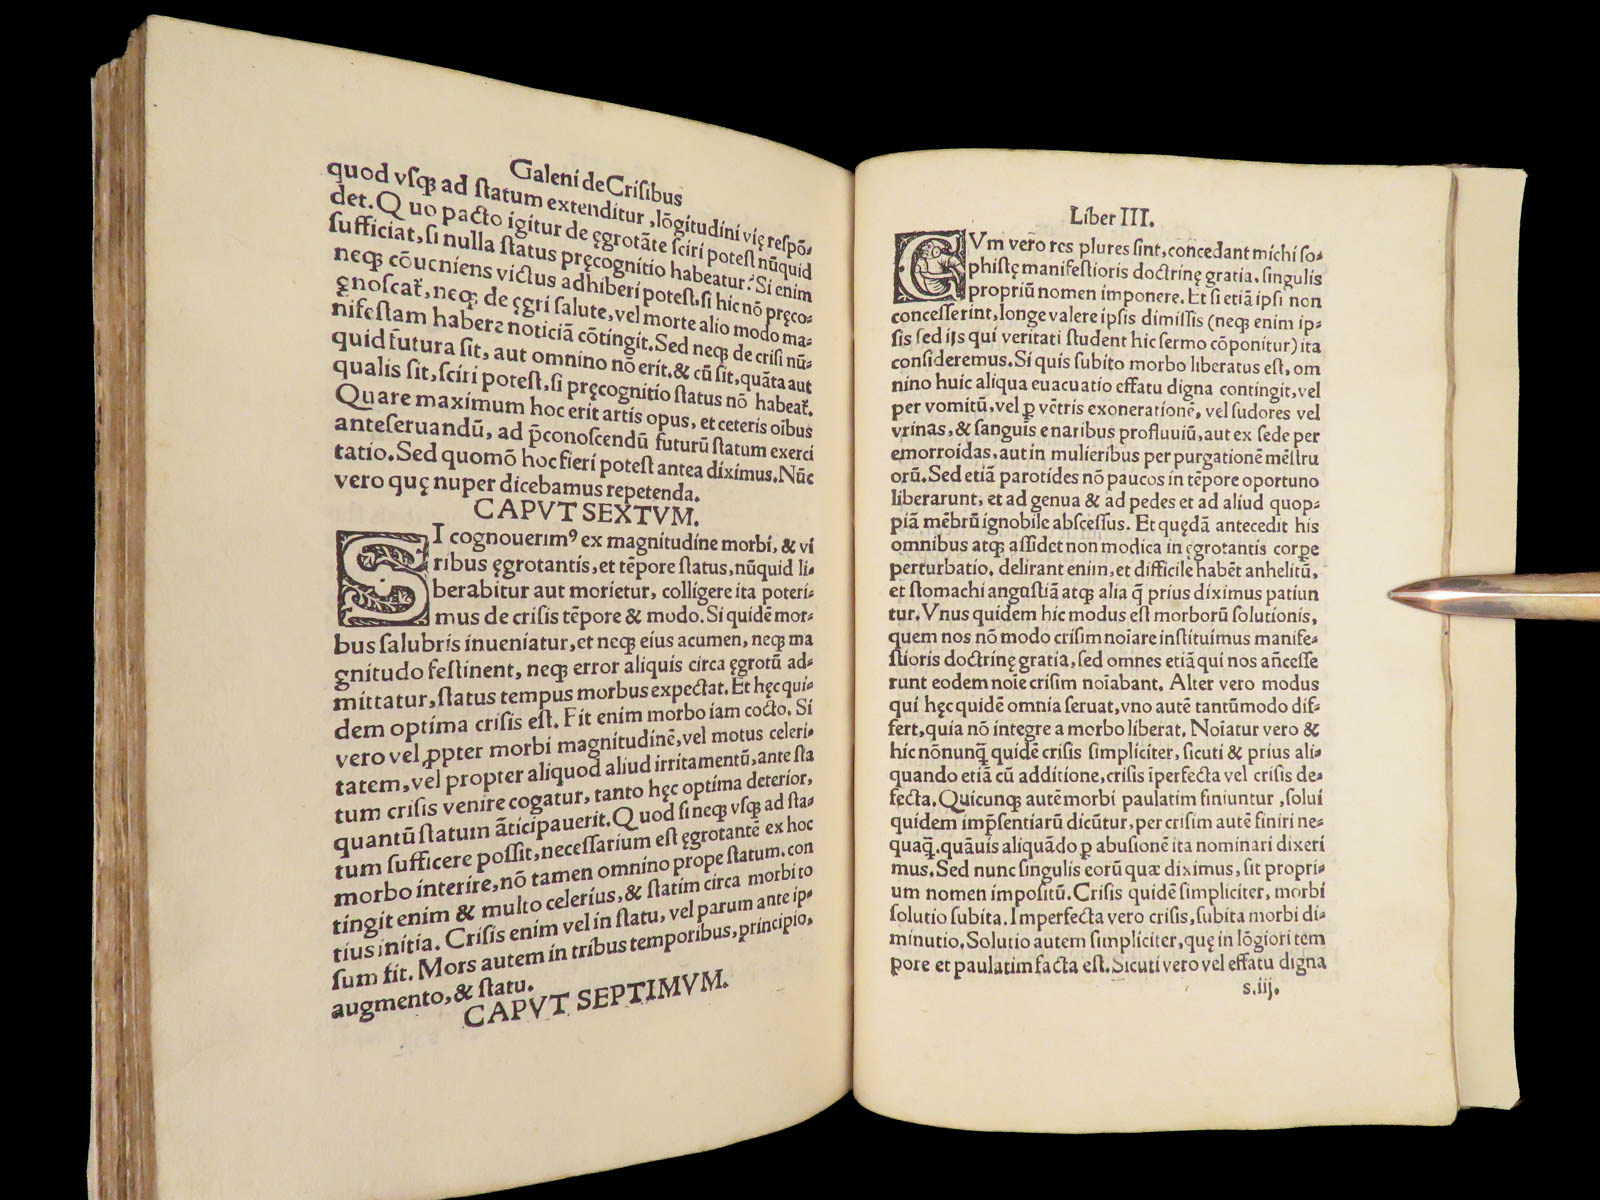 Galeni de Crisibus
quod vſqꝫ ad ſtatum extenditur, lõgitudini vię reſpõ⸗
det. Quo pacto igitur de ęgrotãte ſciri poteſt nũquid
ſufficiat, ſi nulla ſtatus pręcognitio habeatur? Si enim
neqꝫ cõueniens victus adhiberi poteſt, ſi hic nõ pręco⸗
gnoſcat̃, neqꝫ de ęgri ſalute, vel morte alio modo ma⸗
nifeſtam habere noticiã cõtingit. Sed neqꝫ de criſi nũ⸗
quid futura ſit, aut omnino nõ erit. & cũ ſit, quãta aut
qualis ſit, ſciri poteſt, ſi pręcognitio ſtatus nõ habeat̃.
Quare maximum hoc erit artis opus, et ceteris oĩbus
anteſeruandũ, ad p̃conoſcendũ futurũ ſtatum exerci
tatio. Sed quomõ hoc fieri poteſt antea diximus. Nũc
vero quę nuper dicebamus repetenda.
CAPVT SEXTVM.
SI cognouerimꝰ ex magnitudine morbi, & vi
ribus ęgrotantis, et tẽpore ſtatus, nũquid li⸗
berabitur aut morietur, colligere ita poteri⸗
mus de criſis tẽpore & modo. Si quidẽ mor⸗
bus ſalubris inueniatur, et neqꝫ eius acumen, neqꝫ ma
gnitudo feſtinent, neqꝫ error aliquis circa ęgrotũ ad⸗
mittatur, ſtatus tempus morbus expectat. Et hęc qui⸗
dem optima criſis eſt. Fit enim morbo iam cocto. Si
vero vel ꝓpter morbi magnitudinẽ, vel motus celeri⸗
tatem, vel propter aliquod aliud irritamentũ, ante ſta
tum criſis venire cogatur, tanto hęc optima deterior,
quantũ ſtatum ãticipauerit. Quod ſi neqꝫ vſqꝫ ad ſta⸗
tum ſufficere poſſit, neceſſarium eſt ęgrotantẽ ex hoc
morbo interire, nõ tamen omnino prope ſtatum. con
tingit enim & multo celerius, & ſtatim circa morbi to
tius initia. Criſis enim vel in ſtatu, vel parum ante ip⸗
ſum fit. Mors autem in tribus temporibus, principio,
augmento, & ſtatu.
CAPVT SEPTIMVM.
Liber III.
CVm vero res plures ſint, concedant michi ſo⸗
phiſtę manifeſtioris doctrinę gratia. ſingulis
propriũ nomen imponere. Et ſi etiã ipſi non
conceſſerint, longe valere ipſis dimiſſis (neqꝫ enim ip⸗
ſis ſed ijs qui veritati ſtudent hic ſermo cõponitur) ita
conſideremus. Si quis ſubito morbo liberatus eſt, om
nino huic aliqua euacuatio effatu digna contingit, vel
per vomitũ, vel ꝑ vẽtris exonerationẽ, vel ſudores vel
vrinas, & ſanguis e naribus profluuiũ, aut ex ſede per
emorroidas, aut in mulieribus per purgationẽ mẽſtru
orũ. Sed etiã parotides nõ paucos in tẽpore oportuno
liberarunt, et ad genua & ad pedes et ad aliud quop⸗
piã mẽbrũ ignobile abſceſſus. Et quędã antecedit his
omnibus atqꝫ aſſidet non modica in ęgrotantis corpe
perturbatio, delirant enim, et difficile habẽt anhelitũ,
et ſtomachi anguſtiã atqꝫ alia q̃ prius diximus patiun
tur. Vnus quidem hic modus eſt morborũ ſolutionis,
quem nos nõ modo criſim noĩare inſtituimus manife⸗
ſtioris doctrinę gratia, ſed omnes etiã qui nos añceſſe
runt eodem noĩe criſim noĩabant. Alter vero modus
qui hęc quidẽ omnia ſeruat, vno autẽ tantũmodo dif⸗
fert, quia nõ integre a morbo liberat. Noĩatur vero &
hic nõnunq̃ quidẽ criſis ſimpliciter, ſicuti & prius ali⸗
quando etiã cũ additione, criſis ĩperfecta vel criſis de⸗
fecta. Quicunqꝫ autẽ morbi paulatim finiuntur, ſolui
quidem imp̃ſentiarũ dicũtur, per criſim autẽ finiri ne⸗
quaq̃. quãuis aliquãdo ꝑ abuſionẽ ita nominari dixeri
mus. Sed nunc ſingulis eorũ quæ diximus, ſit propri⸗
um nomen impoſitũ. Criſis quidẽ ſimpliciter, morbi
ſolutio ſubita. Imperfecta vero criſis, ſubita morbi di⸗
minutio. Solutio autem ſimpliciter, quę in lõgiori tem
pore et paulatim facta eſt. Sicuti vero vel effatu digna
s.iij.